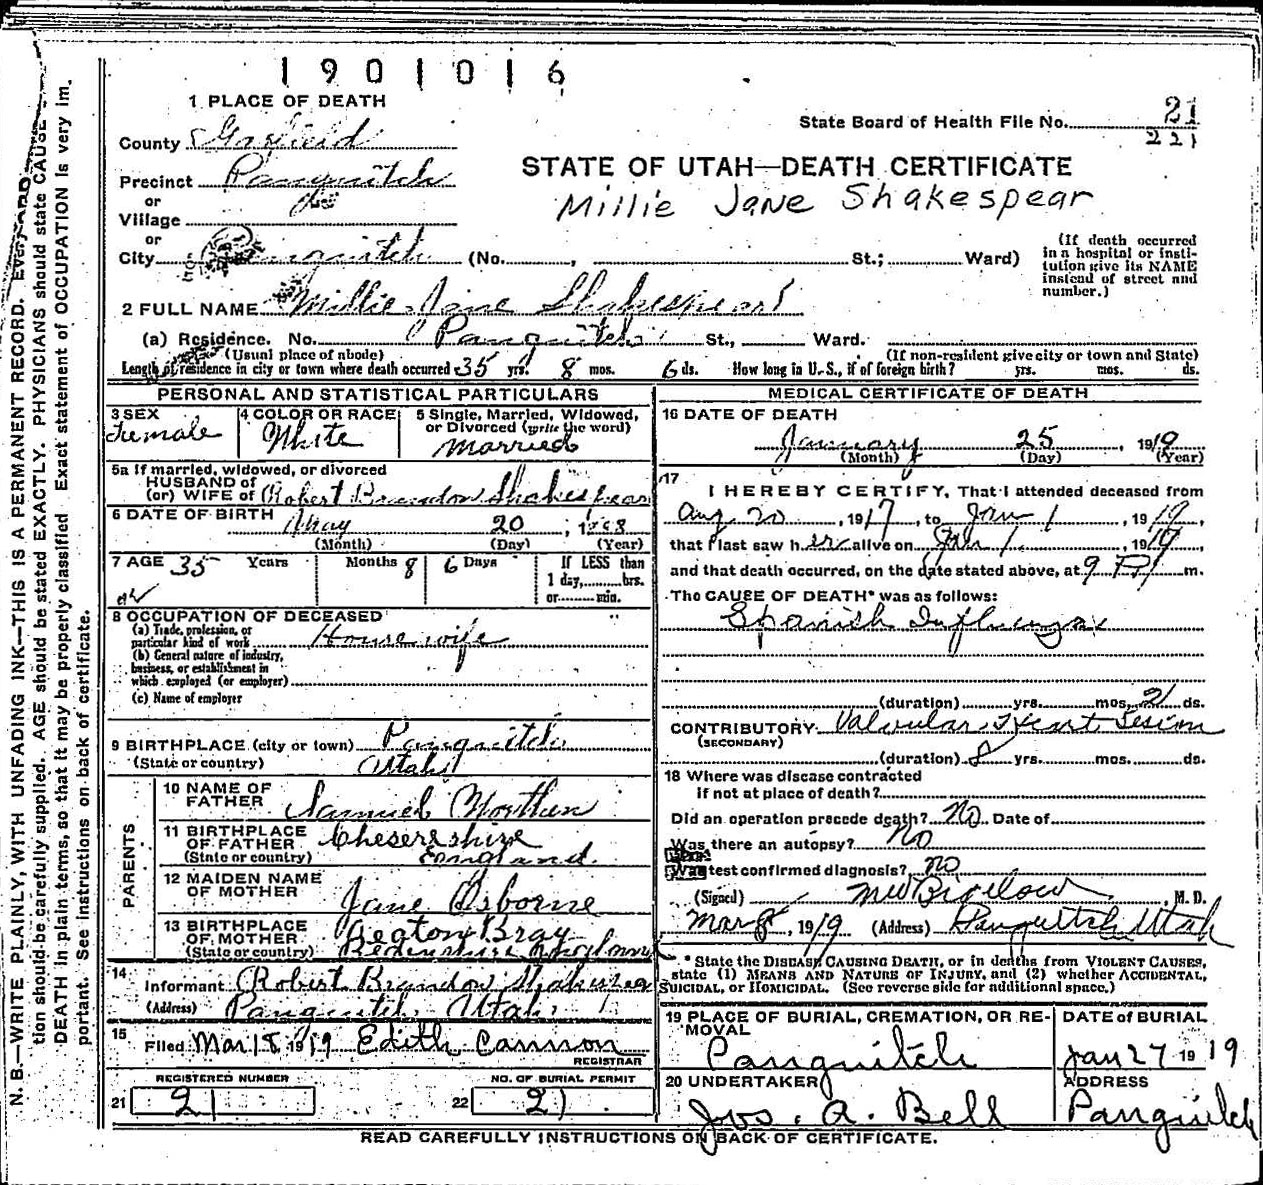 1901016
1 PLACE OF DEATH
State Board of Health File No. 21
221
County Garfield
STATE OF UTAH—DEATH CERTIFICATE
Precinct Panguitch
Millie Jane Shakespear
or
Village
or
City Panguitch (No. , St.; Ward)
(If death occurred
in a hospital or insti-
tution give its NAME
instead of street and
number.)
2 FULL NAME Millie Jane Shakespear
(a) Residence. No. Panguitch St., Ward.
(Usual place of abode) (If non-resident give city or town and State)
Length of residence in city or town where death occurred 35 yrs. 8 mos. 6 ds. How long in U.S., if of foreign birth? yrs. mos. ds.
PERSONAL AND STATISTICAL PARTICULARS
3 SEX
Female
4 COLOR OR RACE
White
5 Single, Married, Widowed,
or Divorced (write the word)
Married
5a If married, widowed, or divorced
HUSBAND of
(or) WIFE of Robert Brandon Shakespear
6 DATE OF BIRTH May 20, 1
(Month) (Day) (Year)
7 AGE 35 Years Months 8 6 Days
If LESS than
1 day, hrs.
or min.
8 OCCUPATION OF DECEASED
(a) Trade, profession, or
particular kind of work House wife
(b) General nature of industry,
business, or establishment in
which employed (or employer)
(c) Name of employer
9 BIRTHPLACE (city or town) Panguitch
(State or country) Utah
PARENTS
10 NAME OF
FATHER Samuel Worthen
11 BIRTHPLACE
OF FATHER Chesereshire
(State or country) England.
12 MAIDEN NAME
OF MOTHER Jane Osborne
13 BIRTHPLACE
OF MOTHER Eeaton Bray
(State or country) England
14
Informant Robert Brandon Shakespear
(Address) Panguitch Utah
15
Filed Mar 18 1919 Edith Cannon
REGISTRAR
REGISTERED NUMBER
21 21
NO. OF BURIAL PERMIT
22 21
MEDICAL CERTIFICATE OF DEATH
16 DATE OF DEATH
January 25, 1919
(Month) (Day) (Year)
17
I HEREBY CERTIFY, That I attended deceased from
Aug 20, 1917, to Jan 1, 1919,
that I last saw her alive on Jan 1, 1919,
and that death occurred, on the date stated above, at 9 P m.
The CAUSE OF DEATH* was as follows:
Spanish Influenza
(duration) yrs. mos. 2 ds.
CONTRIBUTORY Valvular Heart Lesion
(SECONDARY)
(duration) yrs. mos. ds.
18 Where was disease contracted
if not at place of death?
Did an operation precede death? No Date of
Was there an autopsy? No
Was test confirmed diagnosis? no
(Signed) MW Bigelow, M. D.
Mar 8, 1919 (Address) Panguitch Utah
* State the DISEASE CAUSING DEATH, or in deaths from VIOLENT CAUSES,
state (1) MEANS AND NATURE OF INJURY, and (2) whether ACCIDENTAL,
SUICIDAL, or HOMICIDAL. (See reverse side for additional space.)
19 PLACE OF BURIAL, CREMATION, OR RE-
MOVAL
Panguitch
DATE of BURIAL
Jan 27 1919
20 UNDERTAKER
Jos. A. Bell
ADDRESS
Panguitch
READ CAREFULLY INSTRUCTIONS ON BACK OF CERTIFICATE.
N. B.—WRITE PLAINLY, WITH UNFADING INK—THIS IS A PERMANENT RECORD. Every
tion should be carefully supplied. AGE should be stated EXACTLY. PHYSICIANS should state CAUSE
DEATH in plain terms, so that it may be properly classified. Exact statement of OCCUPATION is very im
portant. See instructions on back of certificate.